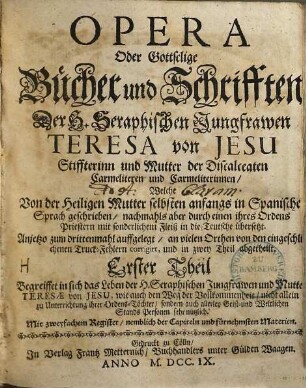 OPERA
Oder Gottselige
Bücher und Schrifften
Der H. Seraphischen Jungfrawen
TERESA von JESU
Stiffterinn und Mutter der Discalceaten
Carmeliteren und Carmeliterinnen/
Welche
Von der Heiligen Mutter selbsten anfangs in Spanische
Sprach geschrieben/ nachmahls aber durch einen ihres Ordens
Priestern mit sonderlichem Fleiß in die Teutsche übersetzt.
Anjetzo zum drittenmahl auffgelegt/ an vielen Orthen von den eingeschli
chenen Truck-Fehlern corrigirt, und in zwey Theil abgetheilt.
Erster Theil
Begreiffet in sich das Leben der H. Seraphischen Jungfrawen und Mutter
TERESÆ von JESU, wie auch den Weg der Vollkommenheit/ nicht allein
zu Unterrichtung ihrer Ordens-Töchter/ sondern auch allerley Geist- und Weltlichen
Stands Personen sehr nutzlich.
Mit zweyfachem Register/ nemblich der Capitelen und fürnehmsten Materien.
Gedruckt zu Cölln/
In Verlag Frantz Metternich/ Buchhändlers unter Gülden Waagen.
ANNO M. DCC. IX.